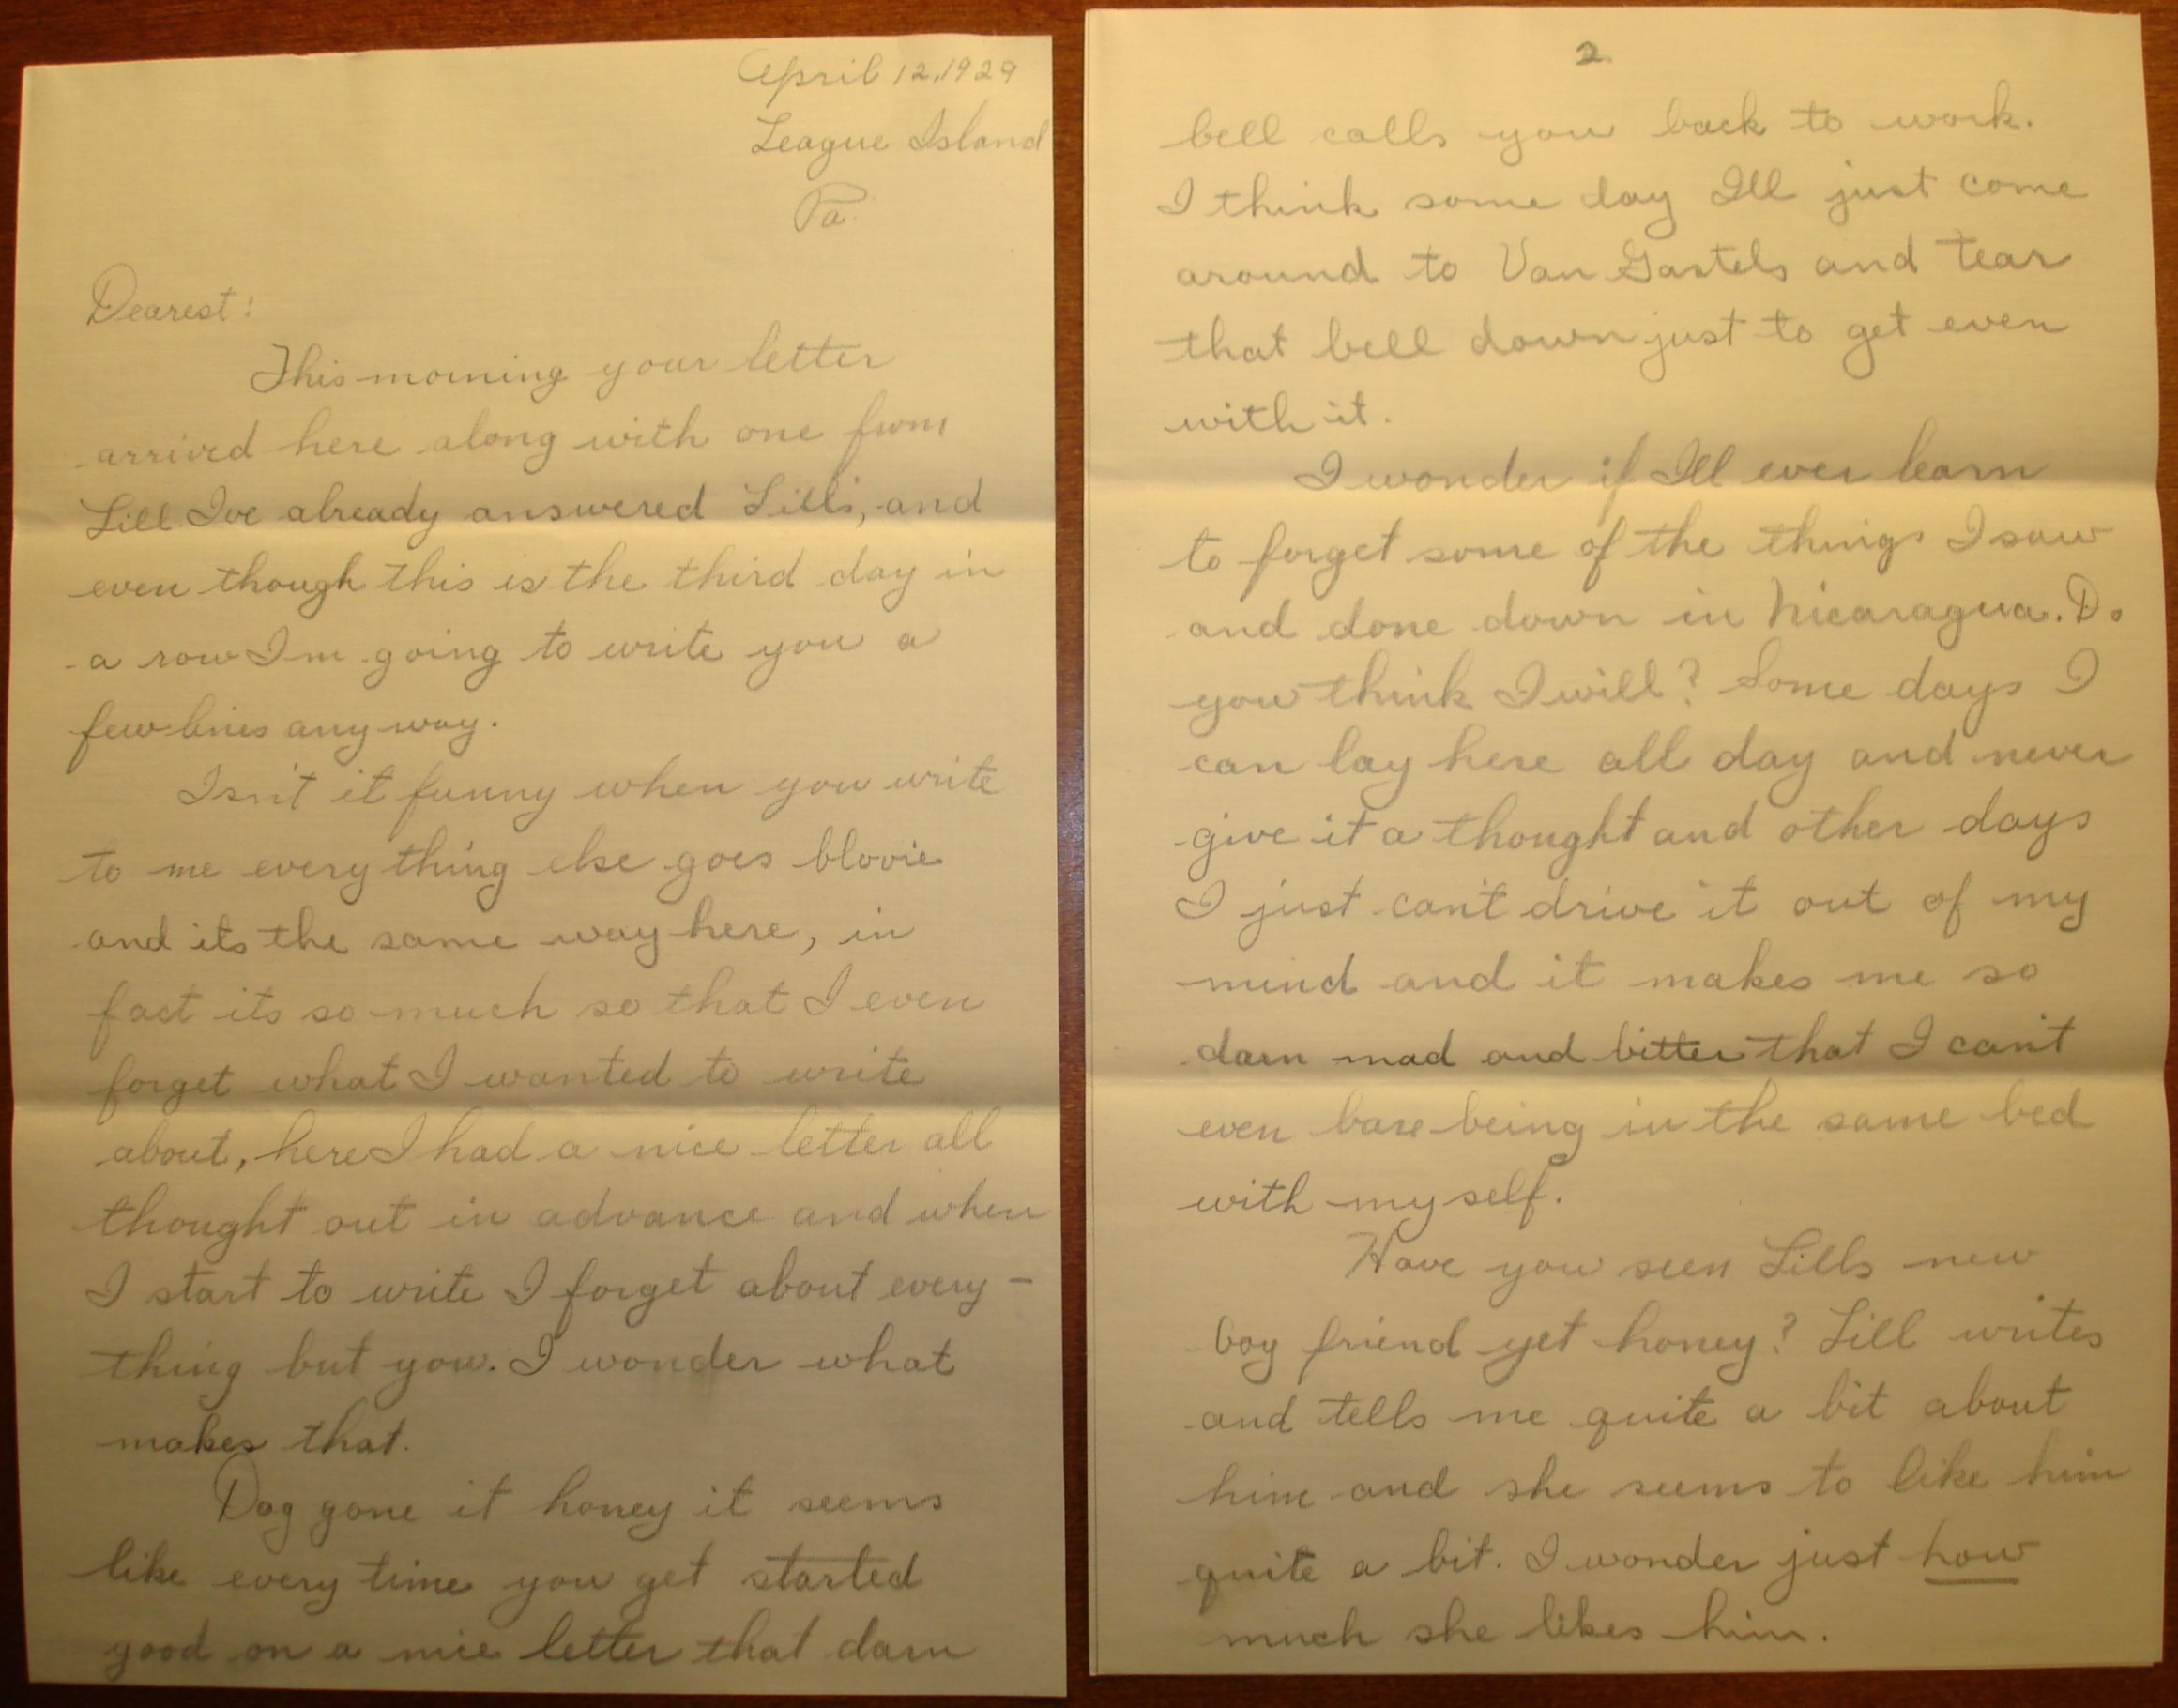 April 12, 1929
League Island
Pa.
Dearest:
This morning your letter
arrived here along with one from
Lill I've already answered Lills, and
even though this is the third day in
a row I'm going to write you a
few lines any way.
Isn't it funny when you write
to me every thing else goes blooie
and its the same way here, in
fact its so much so that I even
forget what I wanted to write
about, here I had a nice letter all
thought out in advance and when
I start to write I forget about every-
thing but you. I wonder what
makes that.
Dog gone it honey it seems
like every time you get started
good on a nice letter that darn
2
bell calls you back to work.
I think some day Ill just come
around to Van Gastels and tear
that bell down just to get even
with it.
I wonder if Ill ever learn
to forget some of the things I saw
and done down in Nicaragua. Do
you think I will? Some days I
can lay here all day and never
give it a thought and other days
I just can't drive it out of my
mind and it makes me so
darn mad and bitter that I can't
even bare being in the same bed
with myself.
Have you seen Lills new
boy friend yet honey? Lill writes
and tells me quite a bit about
him and she seems to like him
quite a bit. I wonder just how
much she likes him.